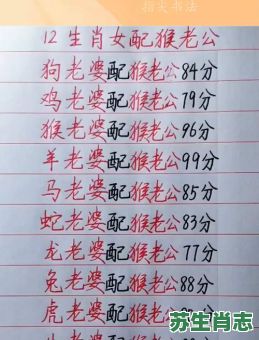 指尖书法
12生肖女配猴老公
狗老婆配猴老公84分
鸡老婆配猴老公79分
猴老婆配猴老公96分
羊老婆配猴老公99分
马老婆配猴老公85分
蛇老婆配猴老公83分
龙老婆配猴老公77分
兔老婆配猴老公88分
虎老婆配猴老公
苏生肖志